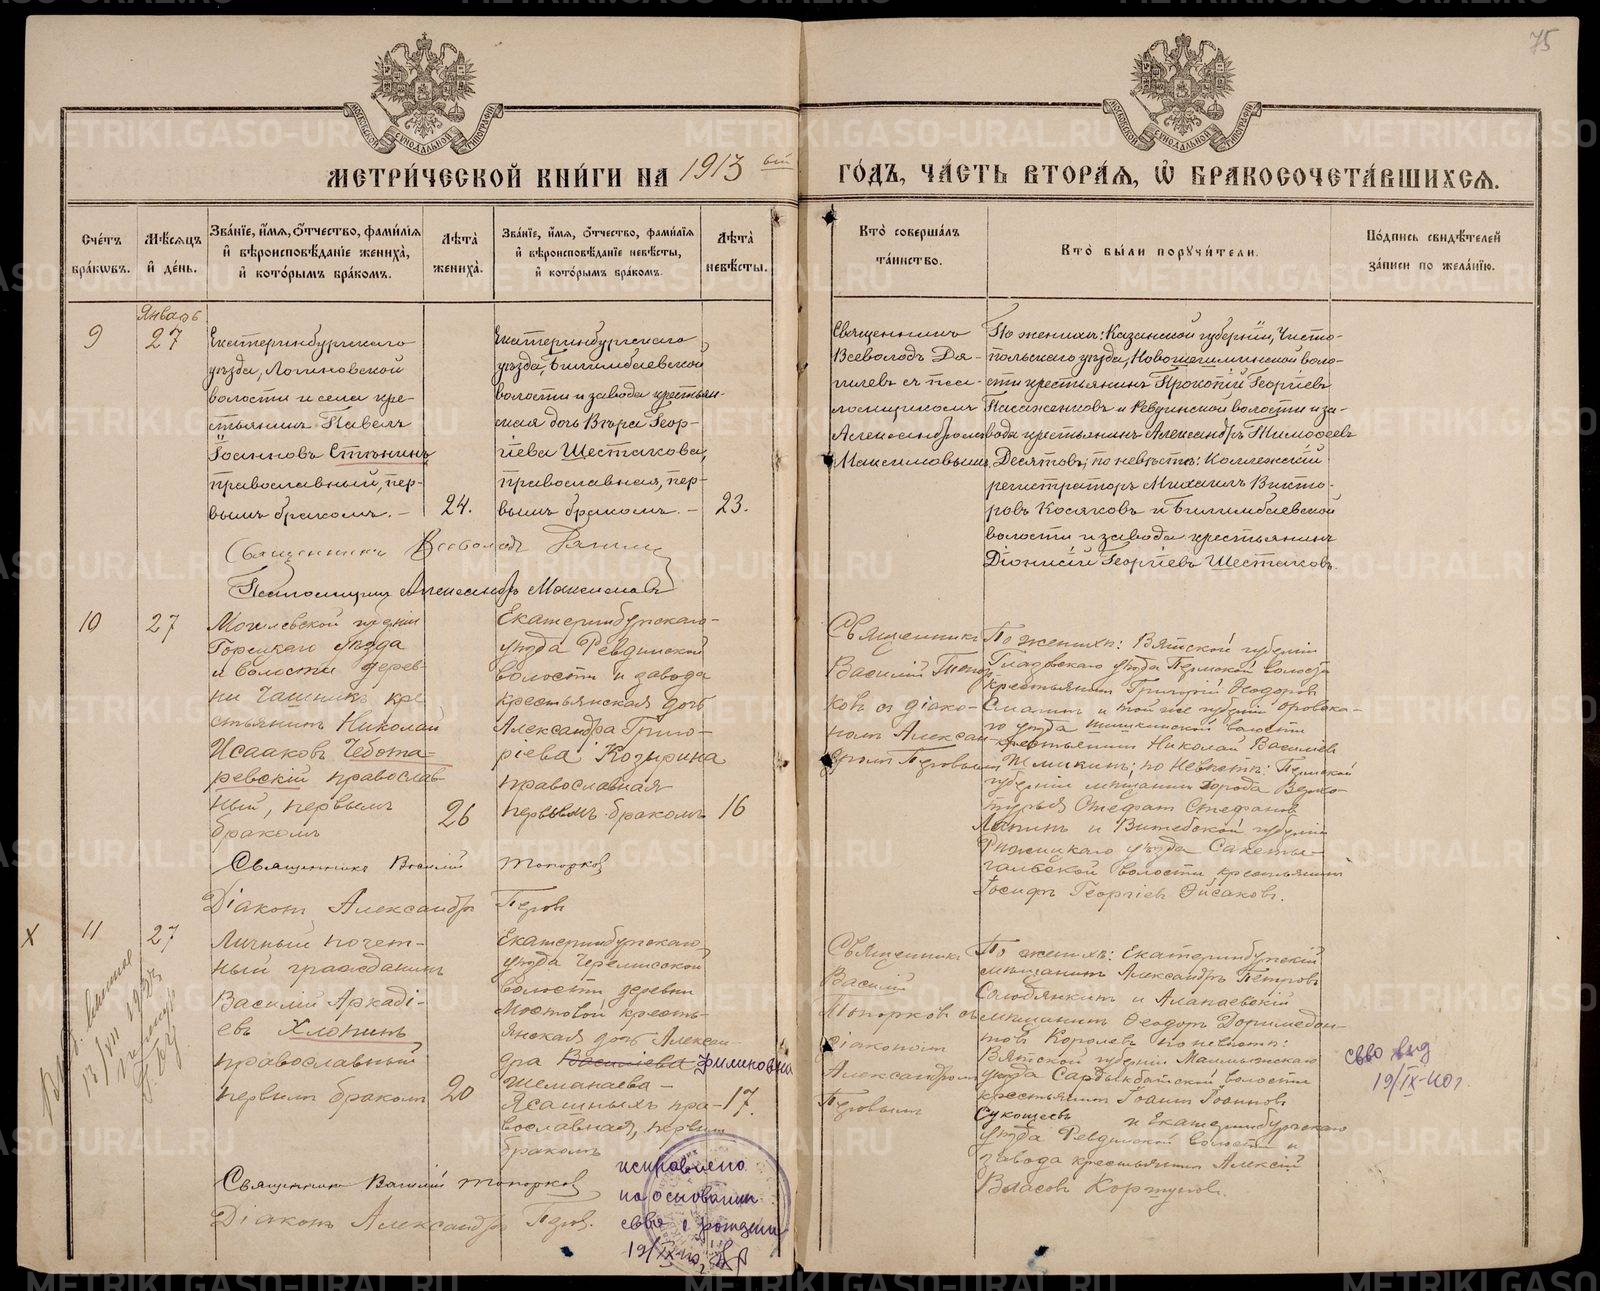 75
МЕТРИ́ЧЕСКОЙ КНИ́ГИ НА 1913 ый
ГО́ДЪ, ЧА́СТЬ ВТОРА́Я, Ѽ БРАКОСОЧЕТА́ВШИХСЯ.
Сче́тъ бра́кѡвъ.
Мѣ́сяцъ и҆ де́нь.
Зва́нїе, и҆́мя, ѻ҆́тчество, фами́лїя
и҆ вѣроисповѣ́данїе жениха̀,
и҆ кото́рымъ бра́комъ.
Лѣ́та жениха̀.
Зва́нїе, и҆́мя, ѻ҆́тчество, фами́лїя
и҆ вѣроисповѣ́данїе невѣ́сты,
и҆ кото́рымъ бра́комъ.
Лѣ́та невѣ́сты.
Кто̀ соверша́лъ
та́инство.
Кто̀ бы́ли порꙋчи́тели.
По́дпись свидѣ́телей
за́писи по жела́нїю.
Январь
9
27
Екатеринбургскаго
уѣзда, Логиновской
волости и села кре
стьянинъ Павелъ
Іоанновъ Стѣнинъ,
православный, пер-
вымъ бракомъ. –
24.
Екатеринбургскаго
уѣзда, Билимбаевской
волости и завода крестьян-
ская дочь Вѣра Геор-
гіева Шестакова,
православная, пер-
вымъ бракомъ. –
23.
Священникъ
Всеволодъ Дя-
гилевъ съ пса-
ломщикомъ
Александромъ
Максимовымъ
По женихѣ: Казанской губерніи, Чисто-
польскаго уѣзда, Новошешминской воло-
сти крестьянинъ Прокопій Георгіевъ
и Ревдинской волости и за-
вода крестьянинъ Александръ Тимофеевъ
Десятовъ; по невѣстѣ: Коллежскій
регистраторъ Михаилъ Викто-
ровъ Косяковъ и Билимбаевской
волости и завода крестьянинъ
Діонисій Георгіевъ Шестаковъ.
Священникъ Всеволодъ
Псаломщикъ Александръ Максимовъ
10
27
Могилевской губерніи
Горецкаго уѣзда
и волости дерев-
ни кре
стьянинъ Николай
Исааковъ Чебота-
ревскій православ
ный, первымъ
бракомъ
26
Екатеринбурскаго-
уѣзда Ревдинской
волости и завода
крестьянская дочь
Александра Григо-
ріева Козырина
православная
первымъ бракомъ
16
Священникъ
Василій Топор
ковъ съ діако-
номъ Алексан-
дромъ Перовымъ
По женихѣ: Вятской губерніи
Глазовскаго уѣзда волости
крестьянинъ Григорій Ѳеодоровъ
и той же губерніи Орловска-
го уѣзда волости
крестьянинъ Николай Василіевъ
по невѣстѣ: Пермской
губерніи мѣщанинъ города Верхо-
турья Стефанъ Стефановъ
Лапинъ и Витебской губерніи
уѣзда
волости крестьянинъ
Іосифъ Георгіевъ
Священникъ Василій Топорковъ
Діаконъ Александръ Перовъ
X
11
27
Личный почет-
ный гражданинъ
Василій Аркаді-
евъ Хлопинъ
православный
первымъ бракомъ
20
Екатеринбургскаго
уѣзда Черемисской
волости деревни
Мостовой кресть-
янская дочь Алексан-
дра Васильева Филиповна
Шеманаева –
Ясашныхъ пра-
вославная, первым
бракомъ
17.
Священникъ
Василій
Топорковъ съ
діакономъ
Александромъ
Перовымъ
По женихѣ: Екатеринбургскій
мѣщанинъ Александръ Петровъ
и Алапаевскій
мѣщанинъ Ѳеодоръ Доримедон-
товъ Королевъ по невѣстѣ:
Вятской губерніи Малмыжскаго
уѣзда волости
крестьянинъ Іоаннъ Іоанновъ
и Екатеринбургскаго
уѣзда Ревдинской волости и
завода крестьянинъ Алексій
Власовъ Коршуновъ.
19/IX-40 г.
Священникъ Василій Топорковъ
Діаконъ Александръ Перовъ.
исправлено
на основании
свва о рождении
19/IX-40 г.
METRIKI.GASO-URAL.RU